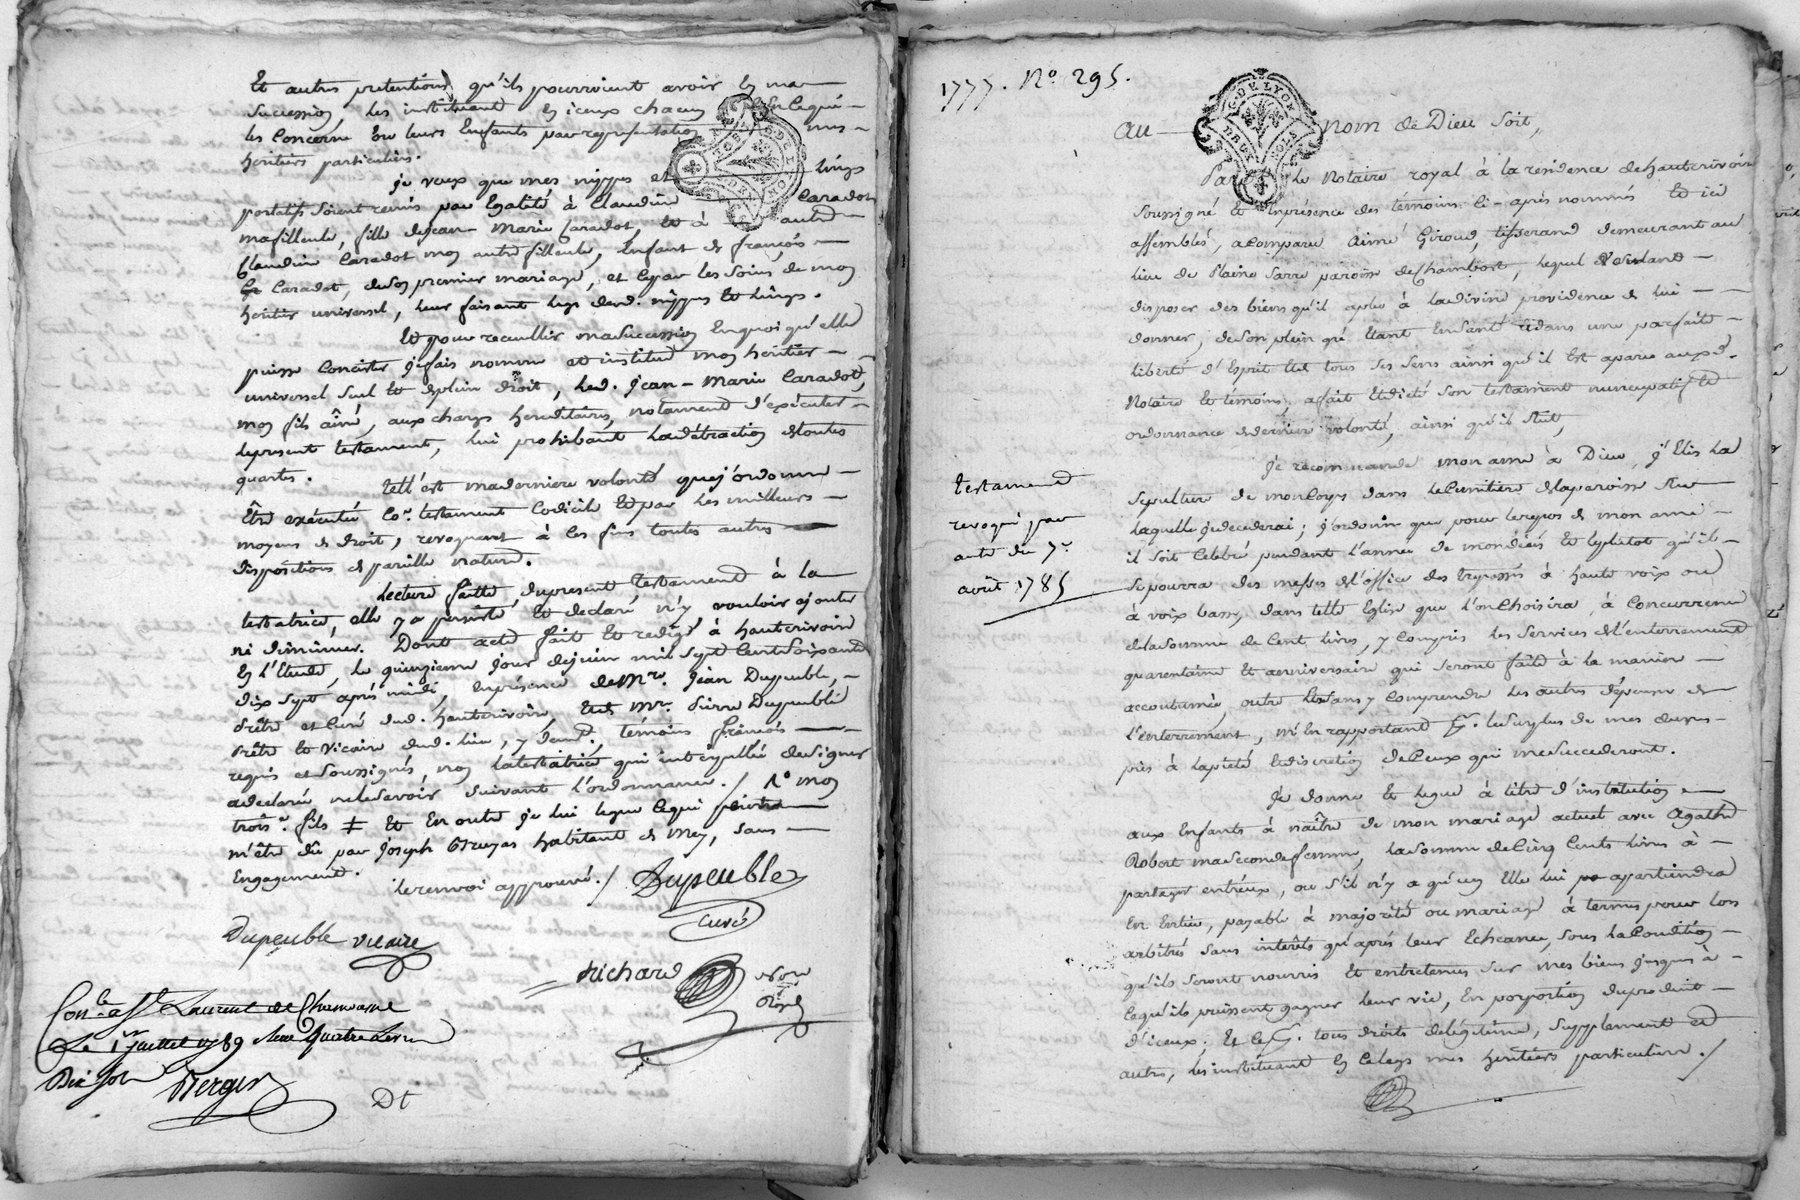 Et autres pretentions qu'ils pourroient avoir En ma
Sucession, les instituant En iceux chacun En Cequi
les Concerne Ou leurs Enfants par representation mes
heritiers particuliers.
je veux que mes nippes et linges
portatifs Soient remis par Egalité à Claudine Caradot
mafilleule, fille dejean-Marie Caradot, Et à autre
Claudine Caradot mon autre filleule, Enfant de françois
Caradot, deson premier mariage, et Cepar les Soins de mon
heritier universel, leur faisant legs desd. nippes Et linges.
Et pour recueillir masucession En quoi qu'elle
puisse Concister jefais nomme et institue mon heritier
universel Seul Et deplein droit, led. jean-Marie Caradot,
mon fils aîné, aux charges hereditaires, notament d'exécuter
lepresent testament, lui prohibant ladétraction detoutes
quartes. tell'est maderniere volonté quej'ordonne
Être exécutée Co.e testament Codicile Et par les meilleurs
moyens de droit, revoquant à Ces fins toutes autres
dispositions de pareille nature.
Lecture faitte dupresent testament à la
testatrice, elle y a persisté Et declaré n'y vouloir ajouter
ni diminuer. Dont acte fait Et redigé à hauterivoire
En l'Etude, le quinzieme jour dejuin mil Sept CentSoixante
dix Sept après midi, En présence de Mre. Jean Dupeuble,
Prêtre et Curé dud. hauterivoire, Et de Mre. Pierre Dupeuble
Prêtre Et Vicaire dud. lieu, y demt. témoins
requis et Soussignés, non latestatrice qui interpellée designer
adeclaré nelesavoir suivant l'ordonnance. / 1° mon
trois.e fils ‡ Et En outre je lui legue Cequi peut
m'être dû par Joseph Bruyas habitant de Mey, Sans
Engagement.
le renvoi approuvé. / Dupeuble
Curé
Dupeuble vicaire
Richard
Con.lé à St Laurent de Chamousset
Le 1er juillet 1789 Quatre Livres
Dix Sols Berger
Dt
1777. No. 295.
G. DE LYON
Au nom de Dieu Soit,
Pardevant le Notaire royal à la residence dehauterivoire
Soussigné Et En présence des témoins Ci-après nommés Et ici
assemblés, a Comparu Aimé Giroud, tisserand demeurant au
lieu de Plaine Sarre paroisse deChambost, lequel Voulant
disposer des biens qu'il aplu à ladivine providence de lui
donner, deSon plein gré Etant En Santé Et dans une parfaite
liberté d'Esprit Et de tous Ses Sens ainsi qu'il Est aparu auxd.
Notaire Et temoins, afait Et dicté Son testament nuncupatif Et
ordonnance dederniere volonté, ainsi qu'il Suit,
Je recommande mon ame à Dieu, j'Elis la
Sepulture de mon Corps dans le Cimitiere delaparoisse Sur
laquelle je decederai; j'ordonne que pour le repos de mon ame
il Soit Celebré pendant l'année de mon décès Et leplutot qu'il
Sepourra des messes del'office des trepassés à haute voix ou
à voix basse, dans telle Eglise que l'on Choisira, à Concurrence
delasomme de Cent livres, y Compris les Services del'enterrement
quarantaine Et anniversaire qui Seront faits à la maniere
accoutumée, outre Et Sans y Comprendre les autres dépenses de
l'enterrement, m'En rapportant pr. le Surplus de mes œuvres
pies à lapieté Et discretion deCeux qui me Succederont.
Je donne Et legue à titre d'institution
aux Enfants à naître de mon mariage actuel avec Agathe
Robert maSecondefemme, laSomme deCinq Cents livres à
partager entr'eux, ou S'il n'y a qu'un Elle lui apartiendra
En Entier, payable à majorité ou mariage à termes pour lors
arbitrés Sans intérêts qu'après leur Echeance, Sous la Condition
qu'ils Seront nourris Et entretenus Sur mes biens jusques à
Cequ'ils puissent gagner leur vie, En porportion duproduit
d'iceux. Et Ce pr. tous droits delégitime, Supplement Et
autres, les instituant En Celegs mes heritiers particuliers. /
testament
revoqué par
acte du 7e
août 1785